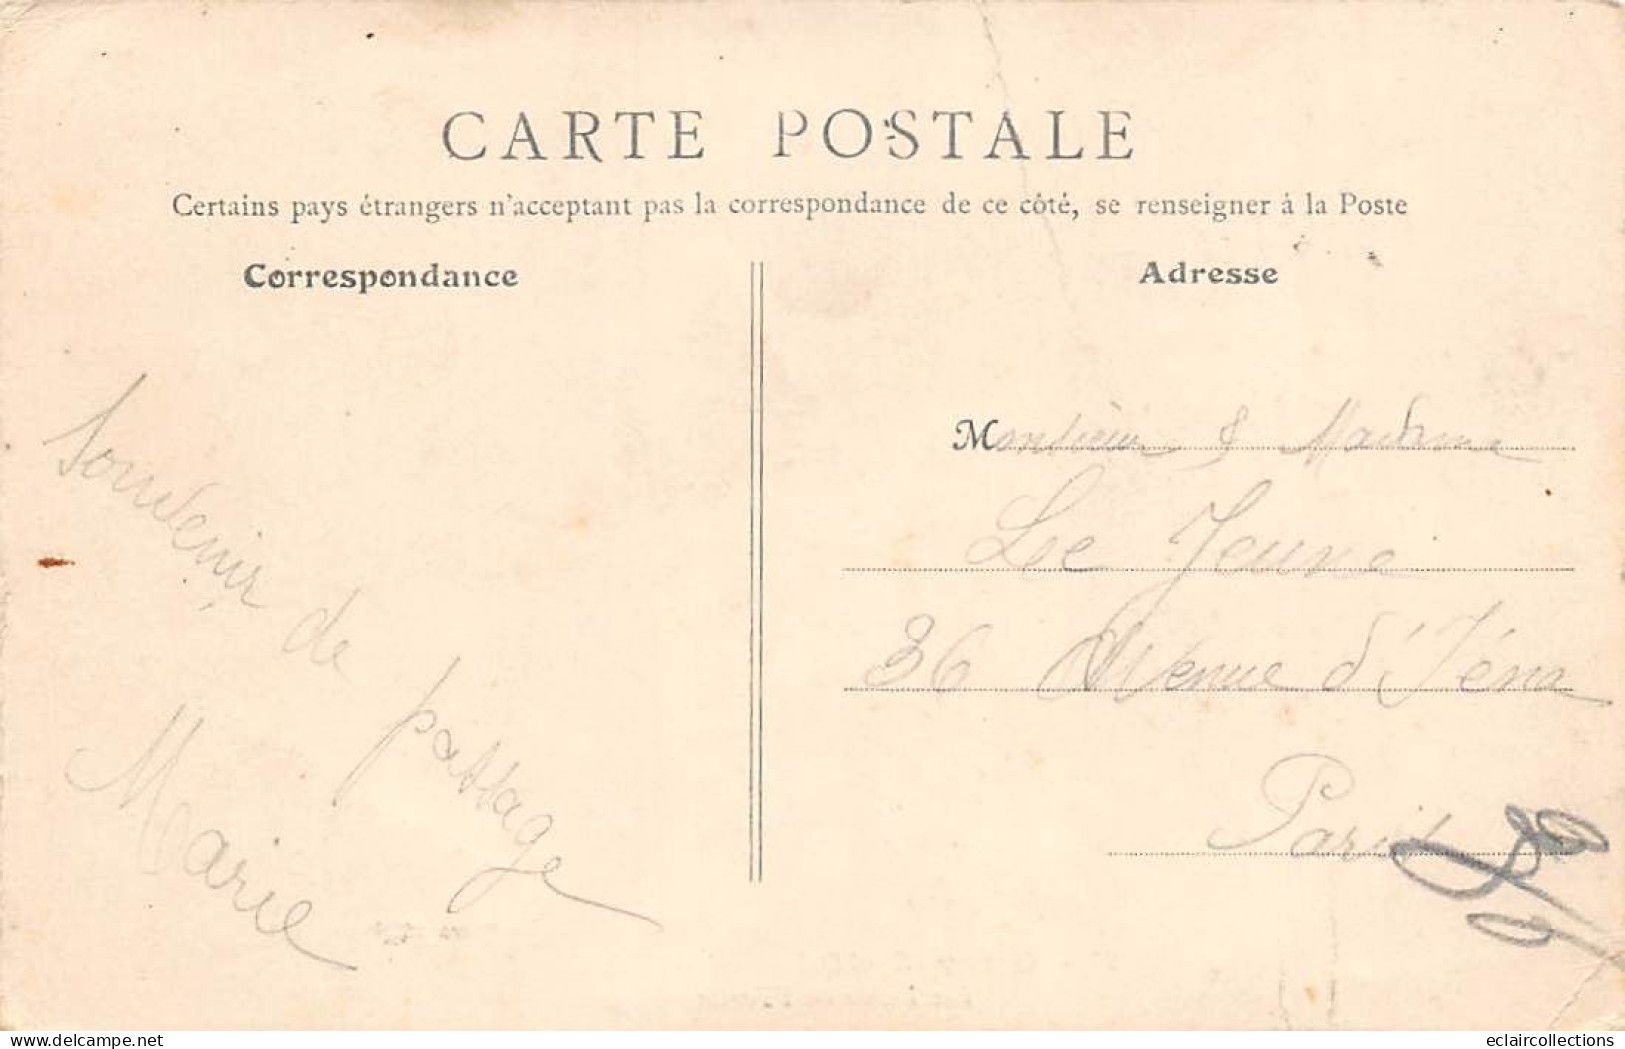 CARTE POSTALE
Certains pays étrangers n'acceptant pas la correspondance de ce côté, se renseigner à la Poste
Correspondance
Adresse
Souvenir de passage
Marie
Monsieur & Madame
Le Jeune
36 Avenue d'Iéna
Paris
delcampe.net
eclaircollections